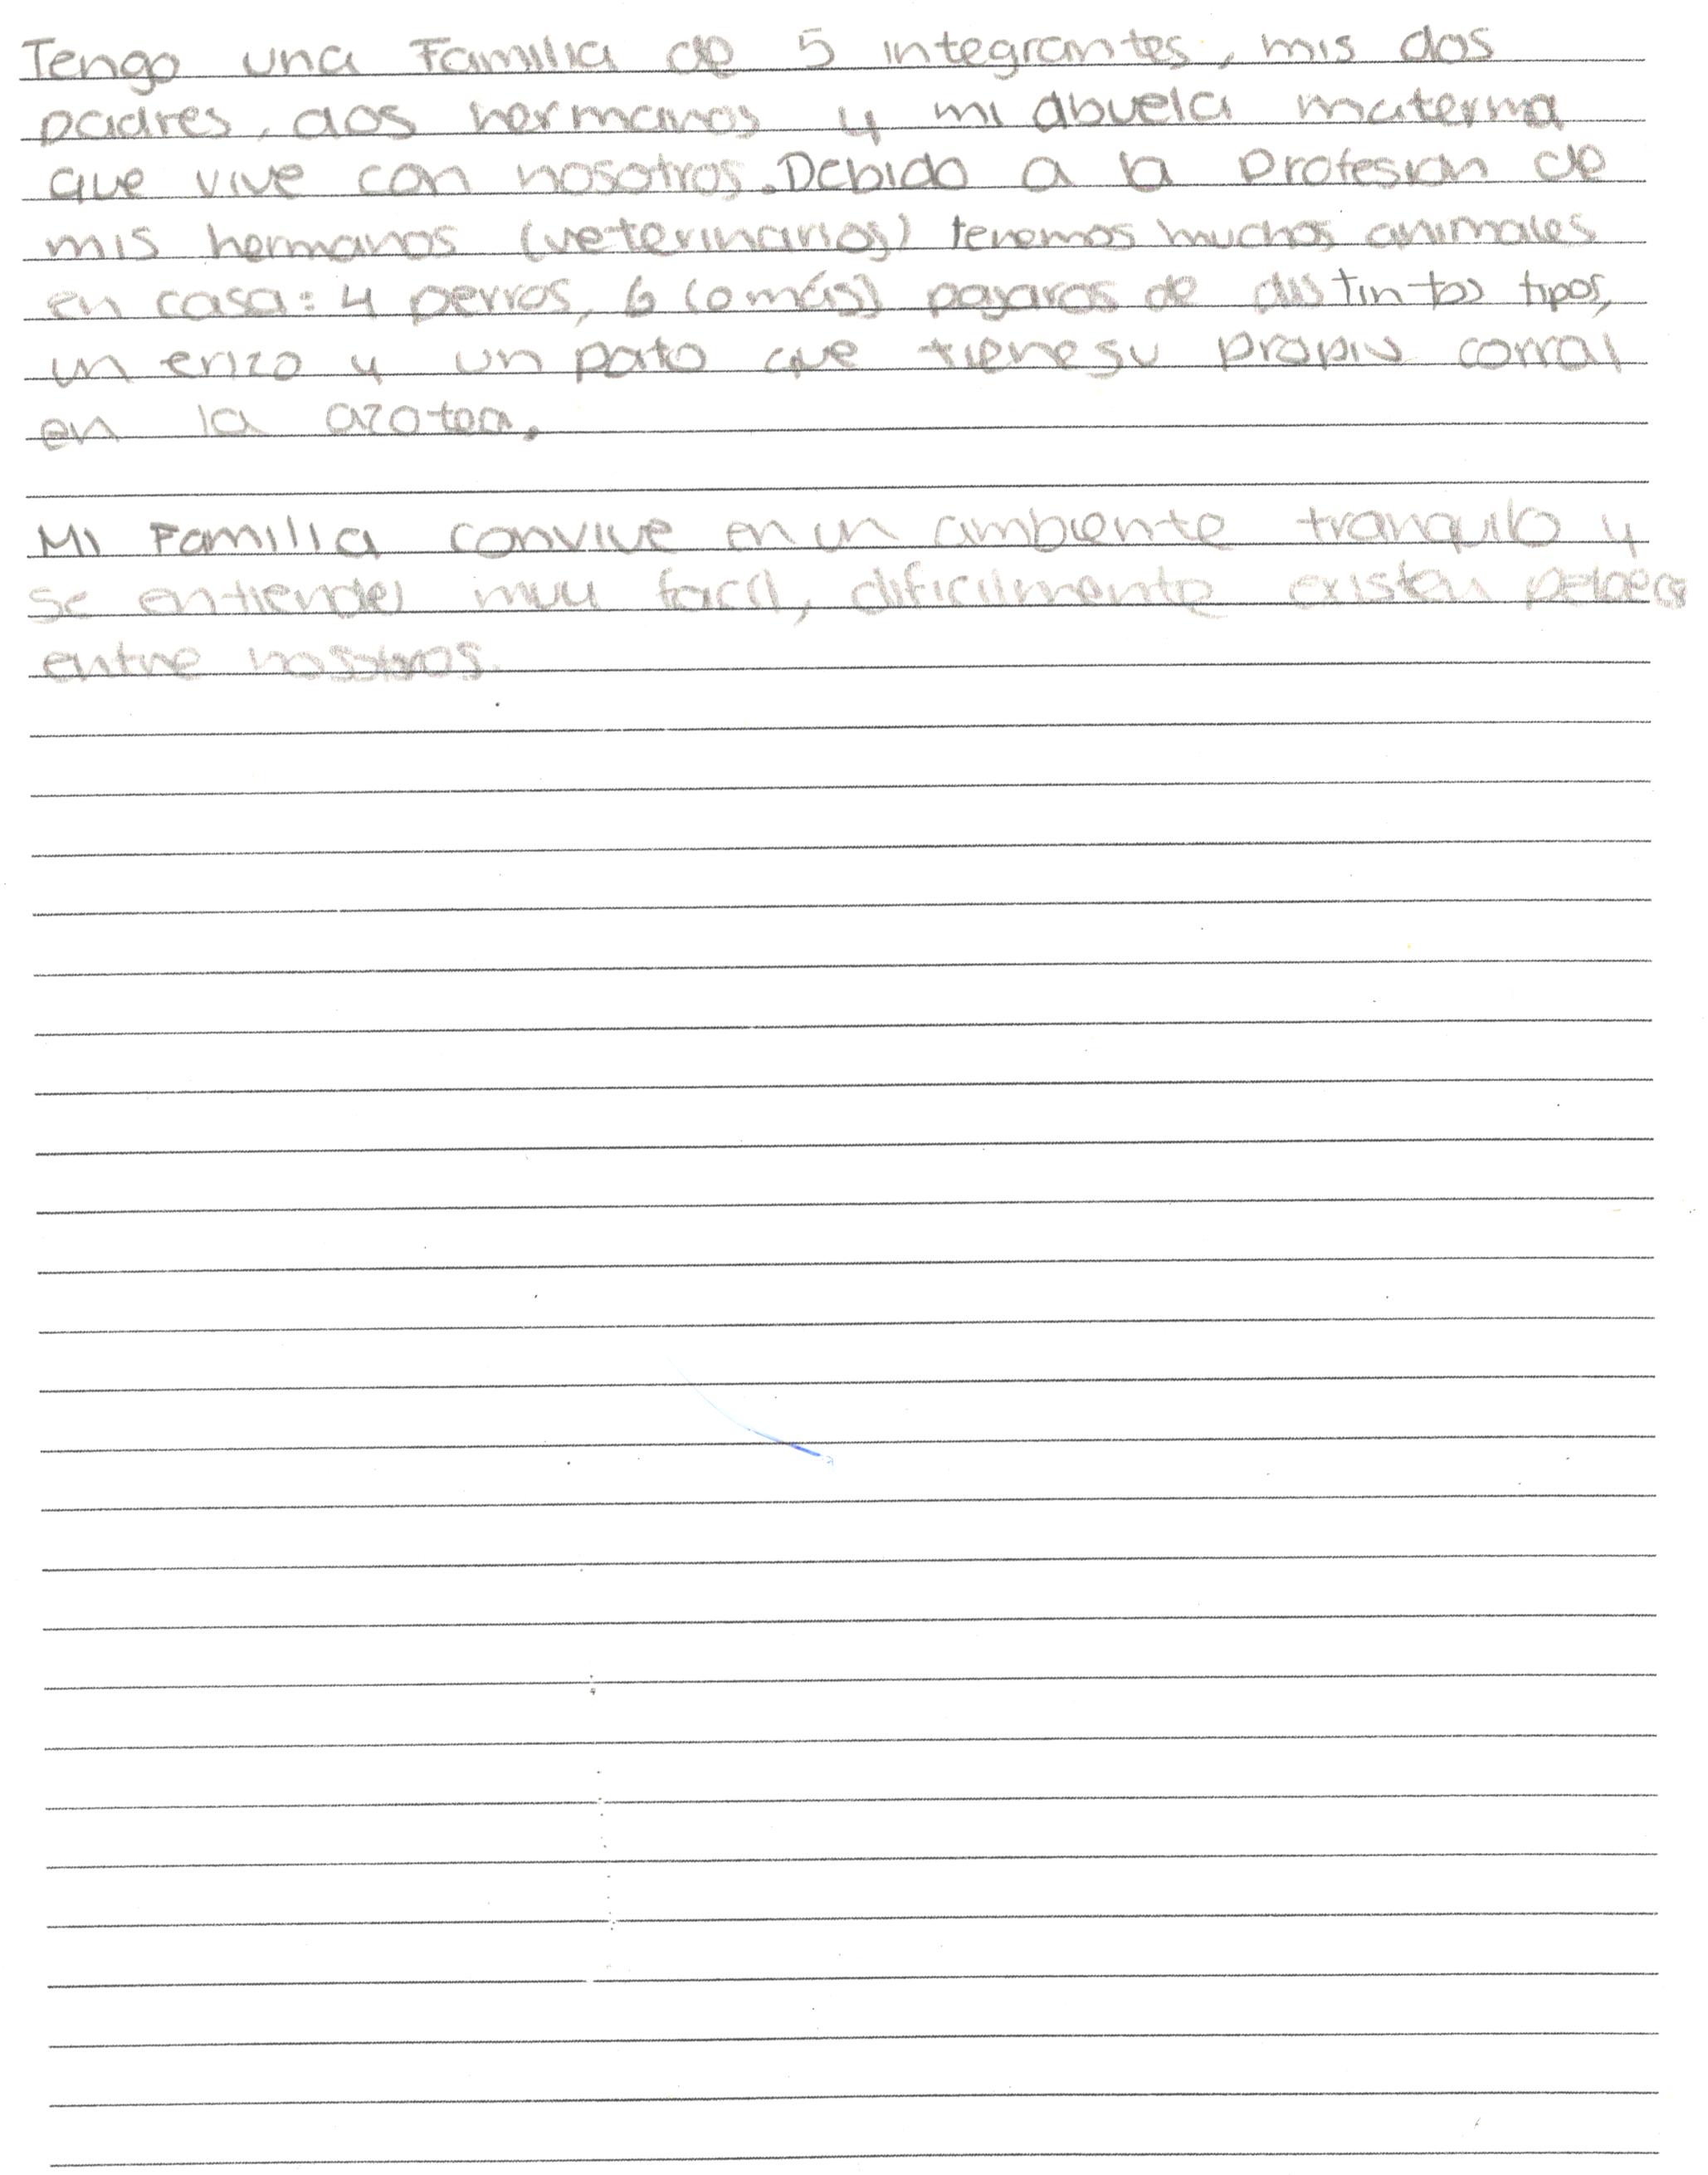 Tengo una Familia de 5 integrantes, mis dos
padres, dos hermanos y mi abuela materna
que vive con nosotros. Debido a la profesion de
mis hermanos (veterinarios) tenemos muchos animales
en casa: 4 perros, 6 (o más) pajaros de distintos tipos,
un erizo y un pato que tiene su propio corral
en la azotea.
Mi Familia convive en un ambiente tranquilo y
se entiender muy facil, dificilmente existen peleas
entre nosotros.